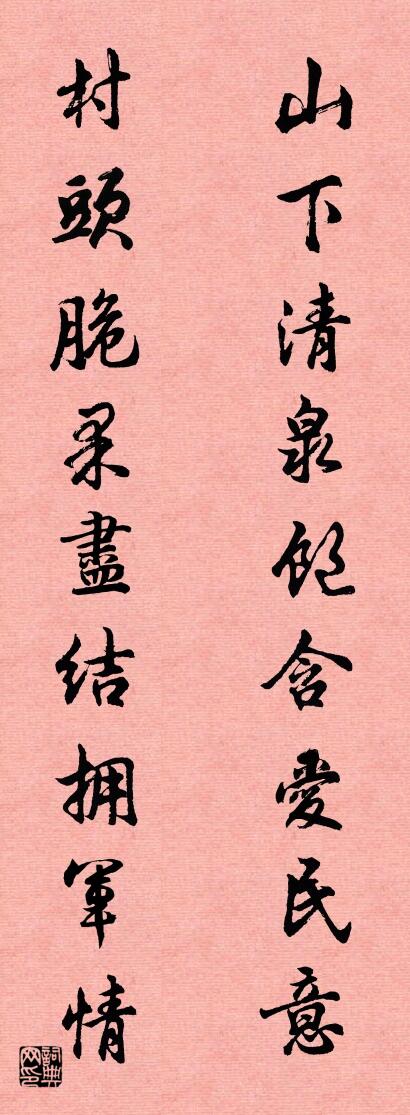 山下清泉飽含愛民意
村頭脆果盡結拥軍情
詞典网印